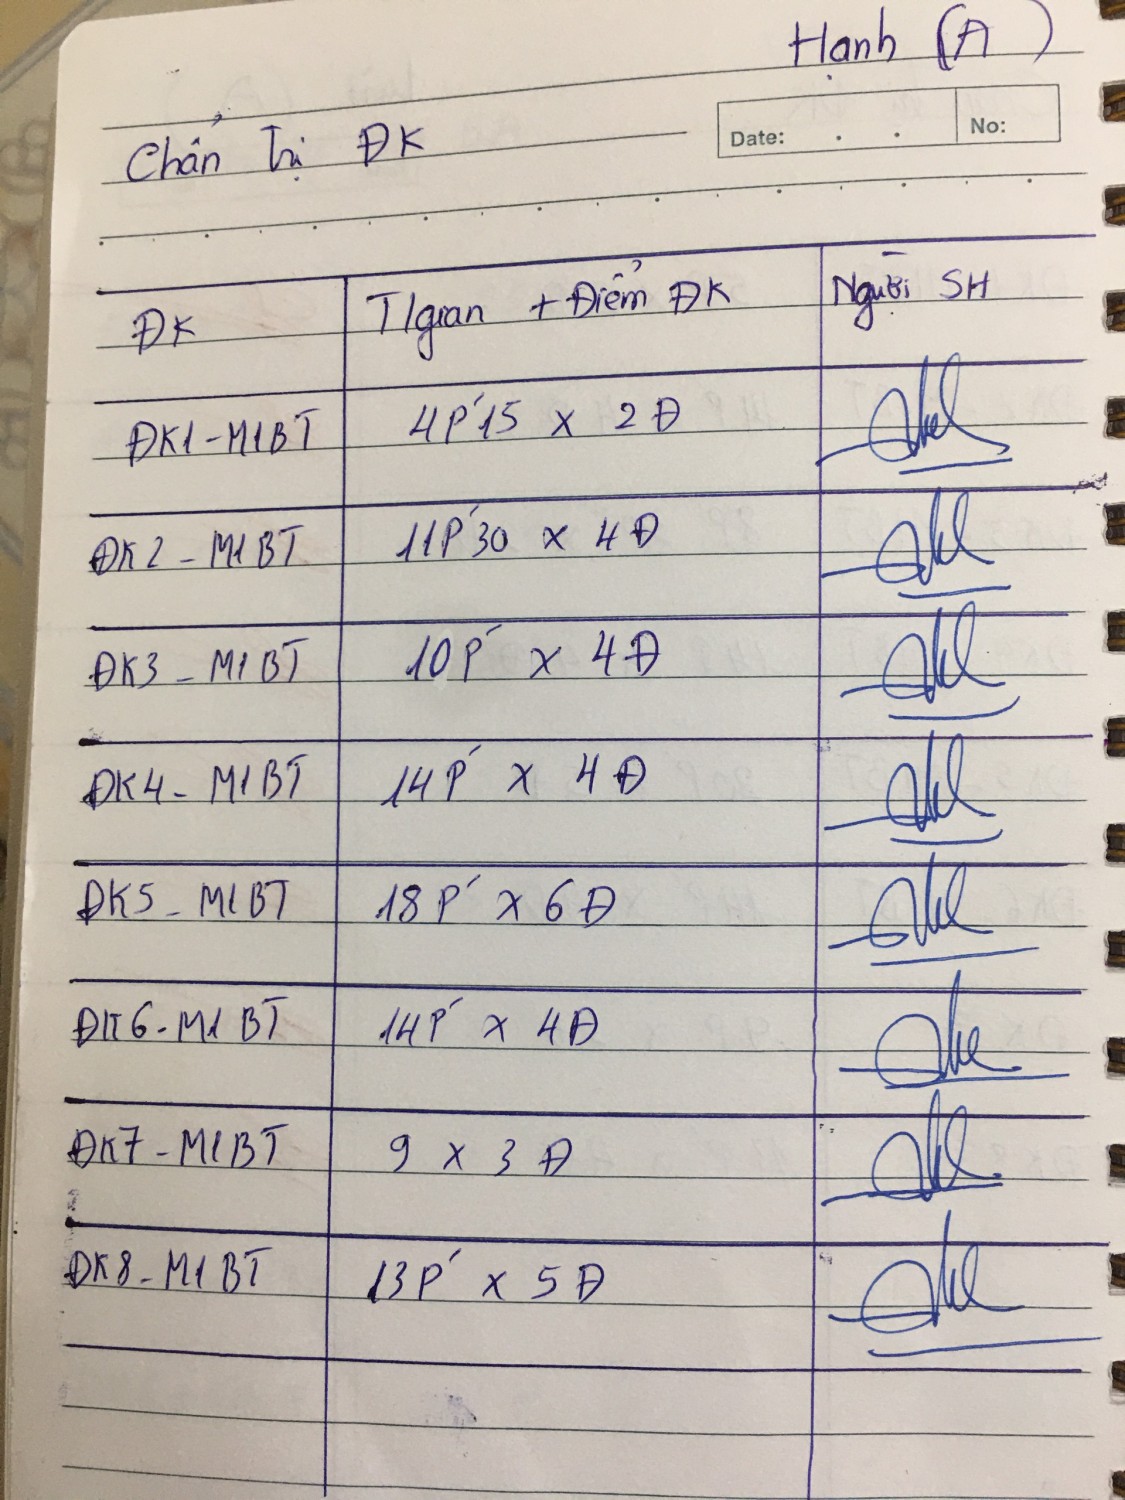 Hạnh (A)
Chẩn trị ĐK
Date: . . No:
ĐK T/gian + Điểm ĐK Người SH
ĐK1-M1BT 4P'15 x 2Đ
ĐK2-M1BT 11P'30 x 4Đ
ĐK3-M1BT 10P' x 4Đ
ĐK4-M1BT 14P' x 4Đ
ĐK5-M1BT 18P' x 6Đ
ĐK6-M1BT 14P' x 4Đ
ĐK7-M1BT 9 x 3Đ
ĐK8-M1BT 13P' x 5Đ